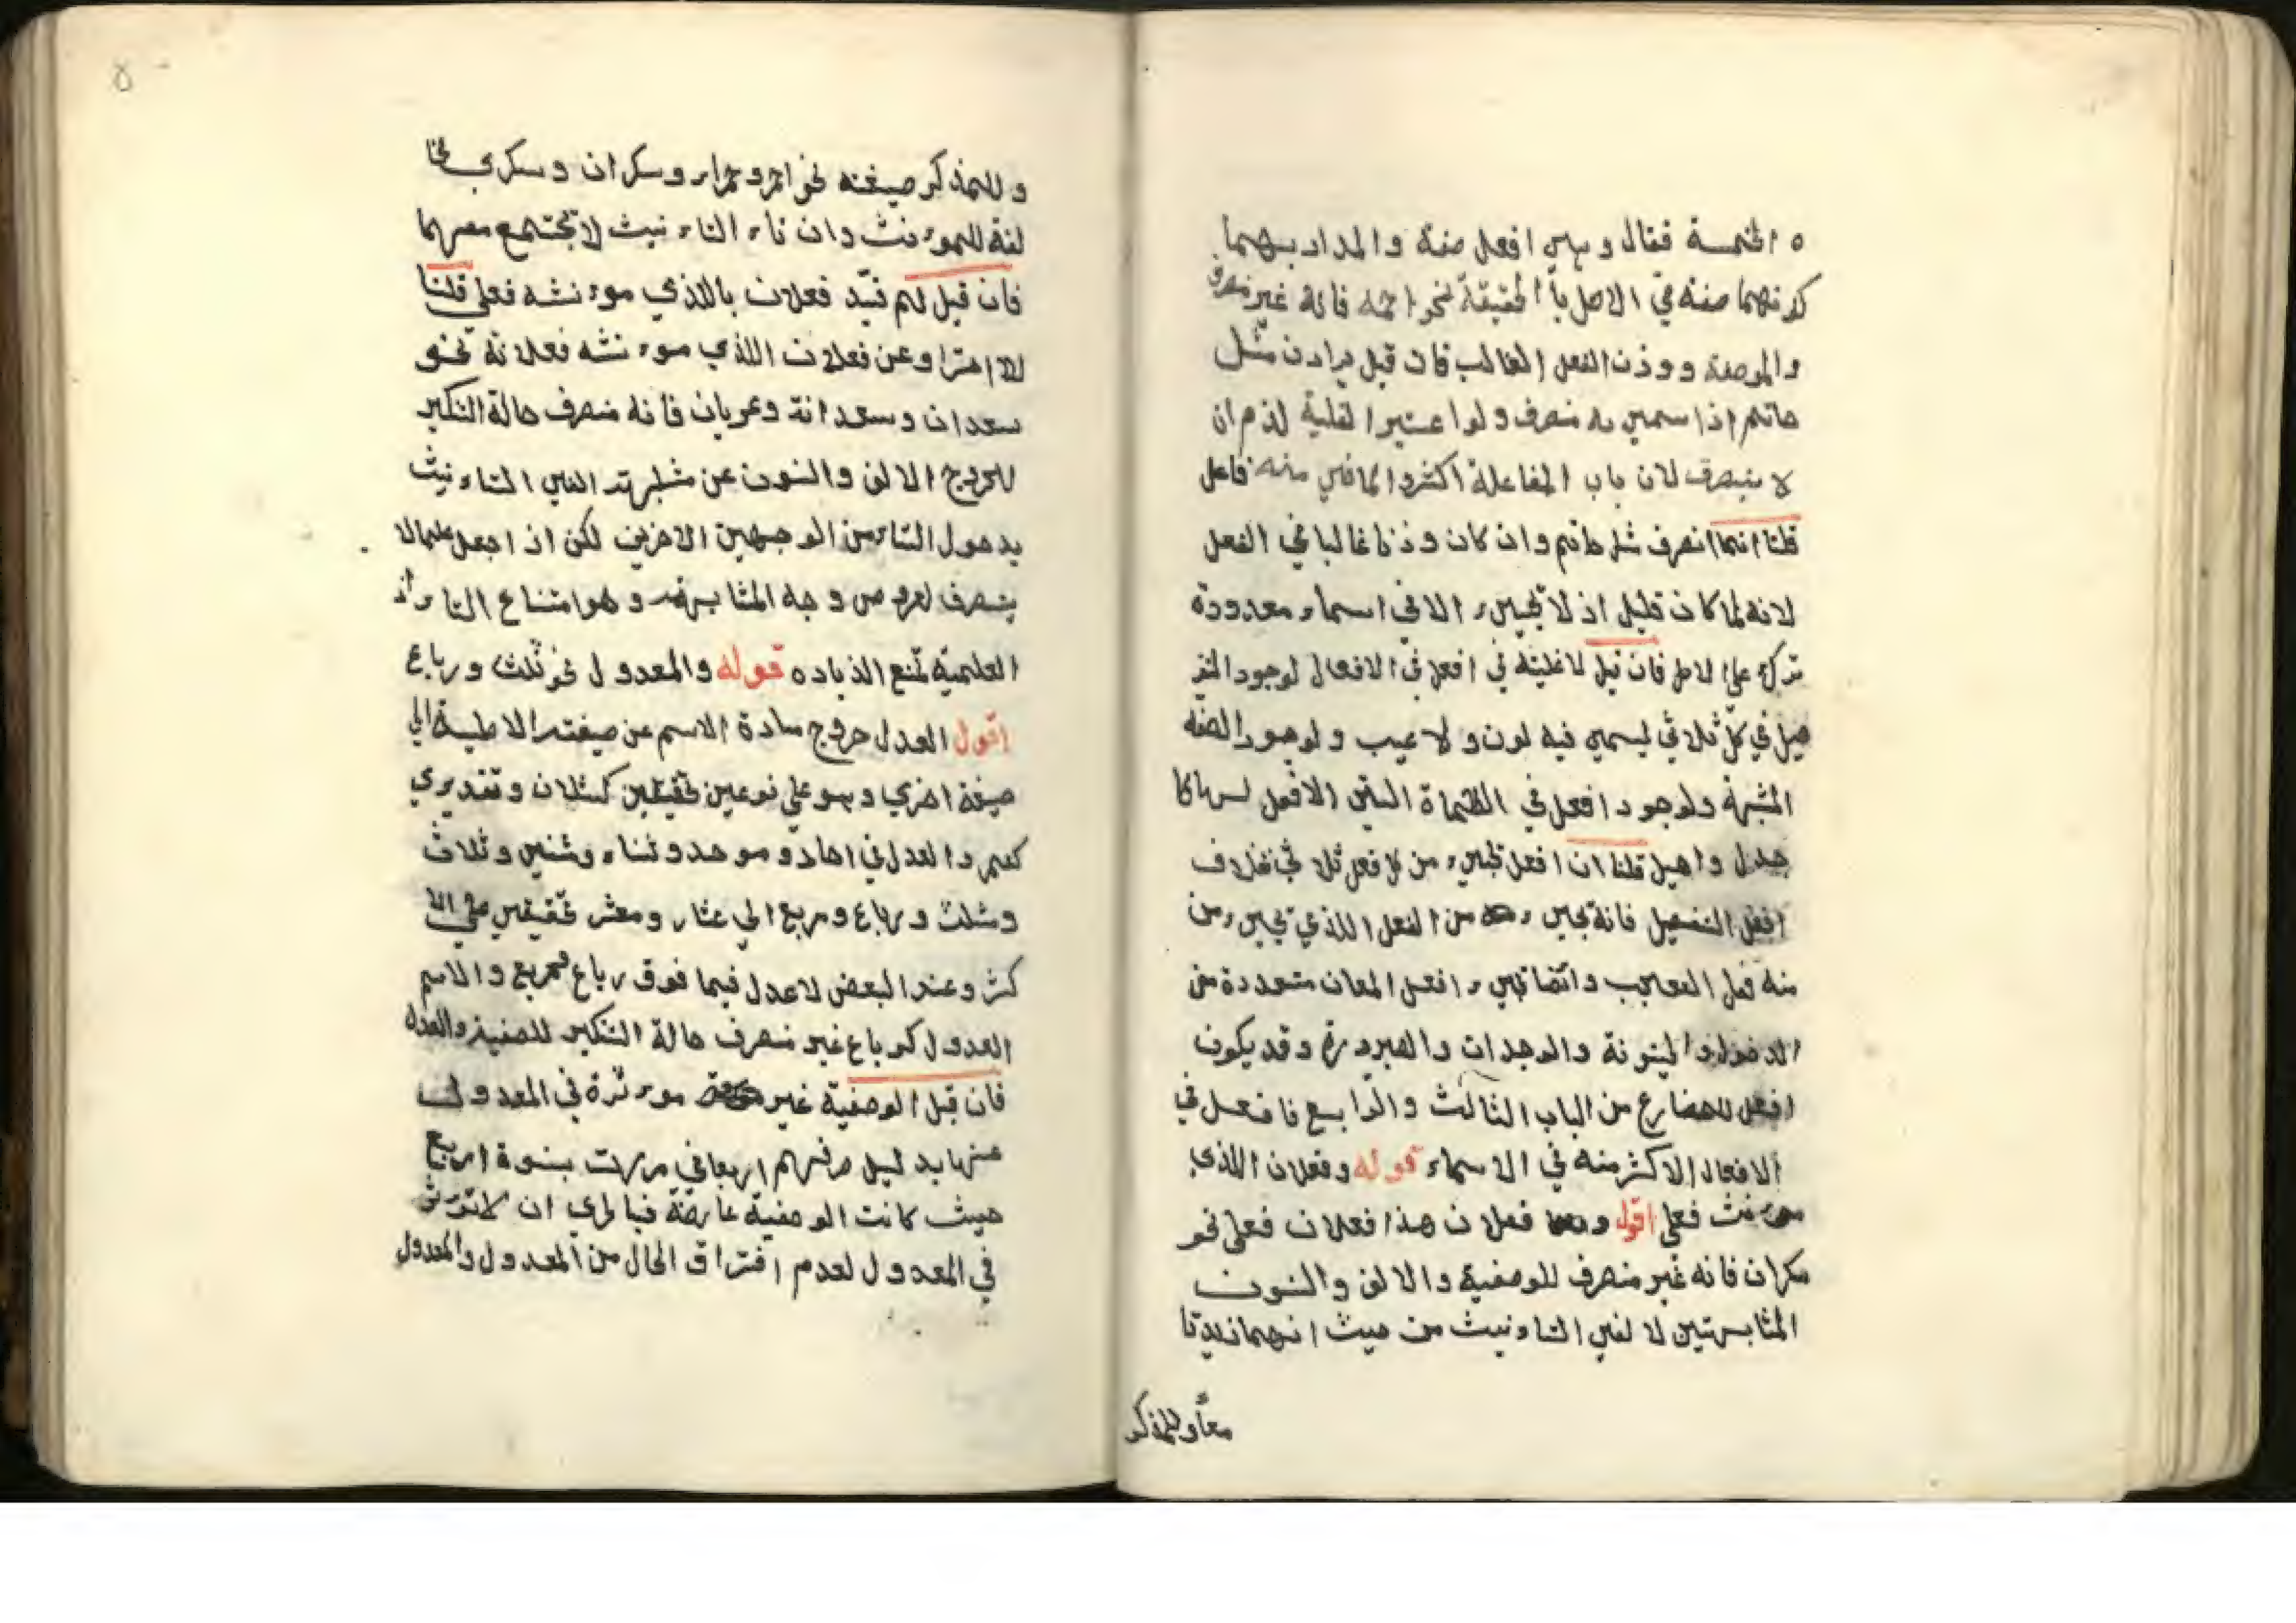 ه الخمسة فقال وهي افعل صفة والمراد بهما
كونهما صفة في الاصل با الحقيقة نحو احمد فانه غير منصرف
والوصفة ووزن الفعل الغالب فان قيل يرادن مثل
حاتم اذا سمي به منصرف ولو اعتبرا لغلبة لزم ان
لا ينصرف لان باب المفاعلة اكثر والماضي منه فاعل
قلنا انما انصرف مثل حاتم وان كان وزنا غالبا في الفعل
لانه لما كان قليل اذ لا تجيء الا في اسماء معدودة
فان قيل لا غلبة في افعل في الافعال لوجود
في كل ثلاثي ليسمي فيه لون ولا عيب ولوجود الصفه
المشبهة ولوجود افعل في
واحيل قلنا ان افعل تجيء من كل فعل ثلاثي بخلاف
افعل التفضيل فانه يجيء من الفعل اللذي يجيء من
منه فعل التعجب وافعل المعان متعددة من
والبينونة والوجدات والصيرورة وقد يكون
افعل للمضارع من الباب الثالث والرابع فا فعل في
الافعال الاكثر منه في الاسماء قوله وفعلان اللذي
موءنث فعلى اقول فعلان هذا فعلان فعلى نحو
سكران فانه غير منصرف للوصفية والالف والنون
المشابهتين لا لفي التاءنيث من حيث انهما زيدتا
معاً وللمذكر
وللمذكر صيغته نحو احمر وحمراء وسكران وسكرى مخا
لفة للموءنث وان تاء التاءنيث لا تجتمع معهما
فان قيل لم قيّد فعلان باللذي موءنثه فعلى قلنا
للاحترا وعن فعلان اللذي موءنثه فعلانة نحو
سعدان وسعدانة وعريان فانه منصرف حالة التنكير
للخروج الالف والنون عن مشابهة الفي التاءنيث
بدخول التاء من الوجهين الاخرين لكن اذا جعل علما لا
ينصرف من وجه المشابهة وهو امتناع التاء اذ
العلمية تمنع الزياده قوله والمعدول نحو ثلث ورباع
اقول العدل خروج مادة الاسم عن صيغته الاصلية الي
صيغة اخري وهو علي نوعين تحقيقين كثلاث وتقديري
كعمر والعدل في احاد وموحد وثناء ومثني وثلاث
ومثلث ورباع ومربع الي عشار ومعشر تحقيقي علي الا
كثر وعند البعض لا عدل فيما فوق رباع ومربع والاسم
المعدول كرباع غير منصرف حالة التنكير للصفية والعدل
فان قيل الوصفية غير موءثرة في المعدول
عنها بدليل صرفهم اربعا في مررت بنسوة اربع
حيث كانت الوصفية عارضة فبا لري ان لا تؤثر
في المعدول لعدم افتراق الحال من المعدول والمعدول